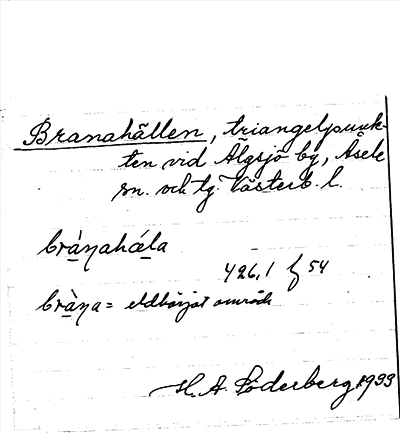 Branahällen, triangelpunk-
ten vid Älgsjö by, Åsele
sn. och tg. Västerb. l.
brànahá̈la
426,1 ɧ 54
bràna = eldhärjat område
H. A. Söderberg 1933